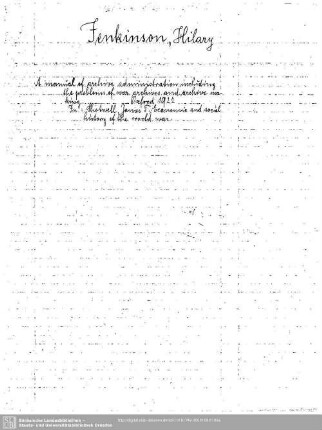 Jenkinson, Hilary
A manual of archive administration including
the problems of war archives and archive ma-
king. Oxford 1922
In: Shotwell, James T.: Economic and social
history of the world war
Sächsische Landesbibliothek -
Staats- und Universitätsbibliothek Dresden